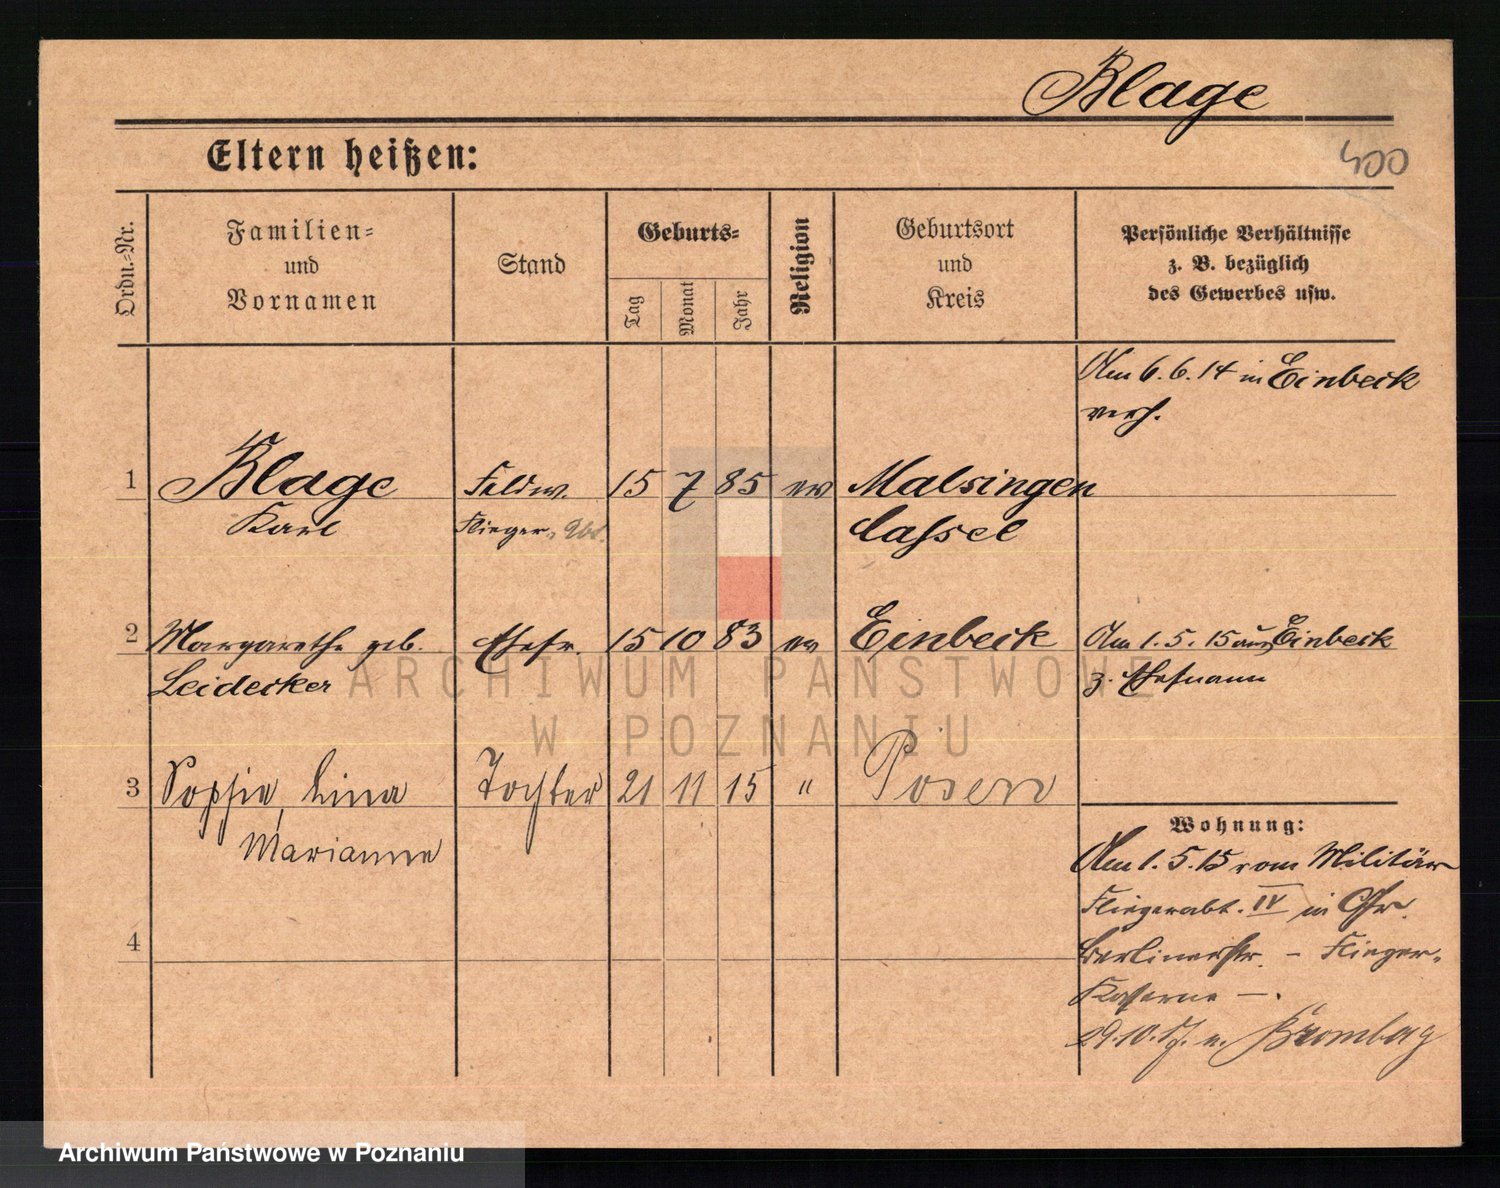 Blage
400
Eltern heißen:
Ordn.-Nr.
Familien-
und
Vornamen
Stand
Geburts-
Tag
Monat
Jahr
Religion
Geburtsort
und
Kreis
Persönliche Verhältnisse
z. B. bezüglich
des Gewerbes usw.
Am 6. 6. 14 in Einbeck
verh.
1 Blage Feldw. 15 7 85 ev Malsingen
Karl Flieger- Cassel
2 Margarethe geb. Ehefr. 15 10 83 ev Einbeck Am 1. 5. 15 aus Einbeck
Leidecker z. Ehemann
3 Sophie, Lina Tochter 21 11 15 " Posen
Marianne
Wohnung:
Am 1. 5. 15 vom Militär
Fliegerabt. IV in
4 Berlinerstr. - Flieger-
Kaserne -.
29. 10. 17. n. Bromberg
ARCHIWUM PAŃSTWOWE
W POZNANIU
Archiwum Państwowe w Poznaniu